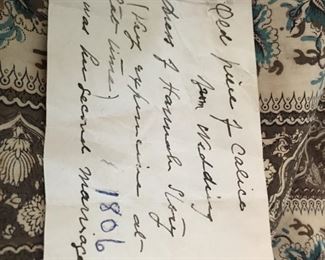 Old piece of Calico
from Wedding
dress of Hannah Story
(Very expensive at
that time)
1806
was her second marriage